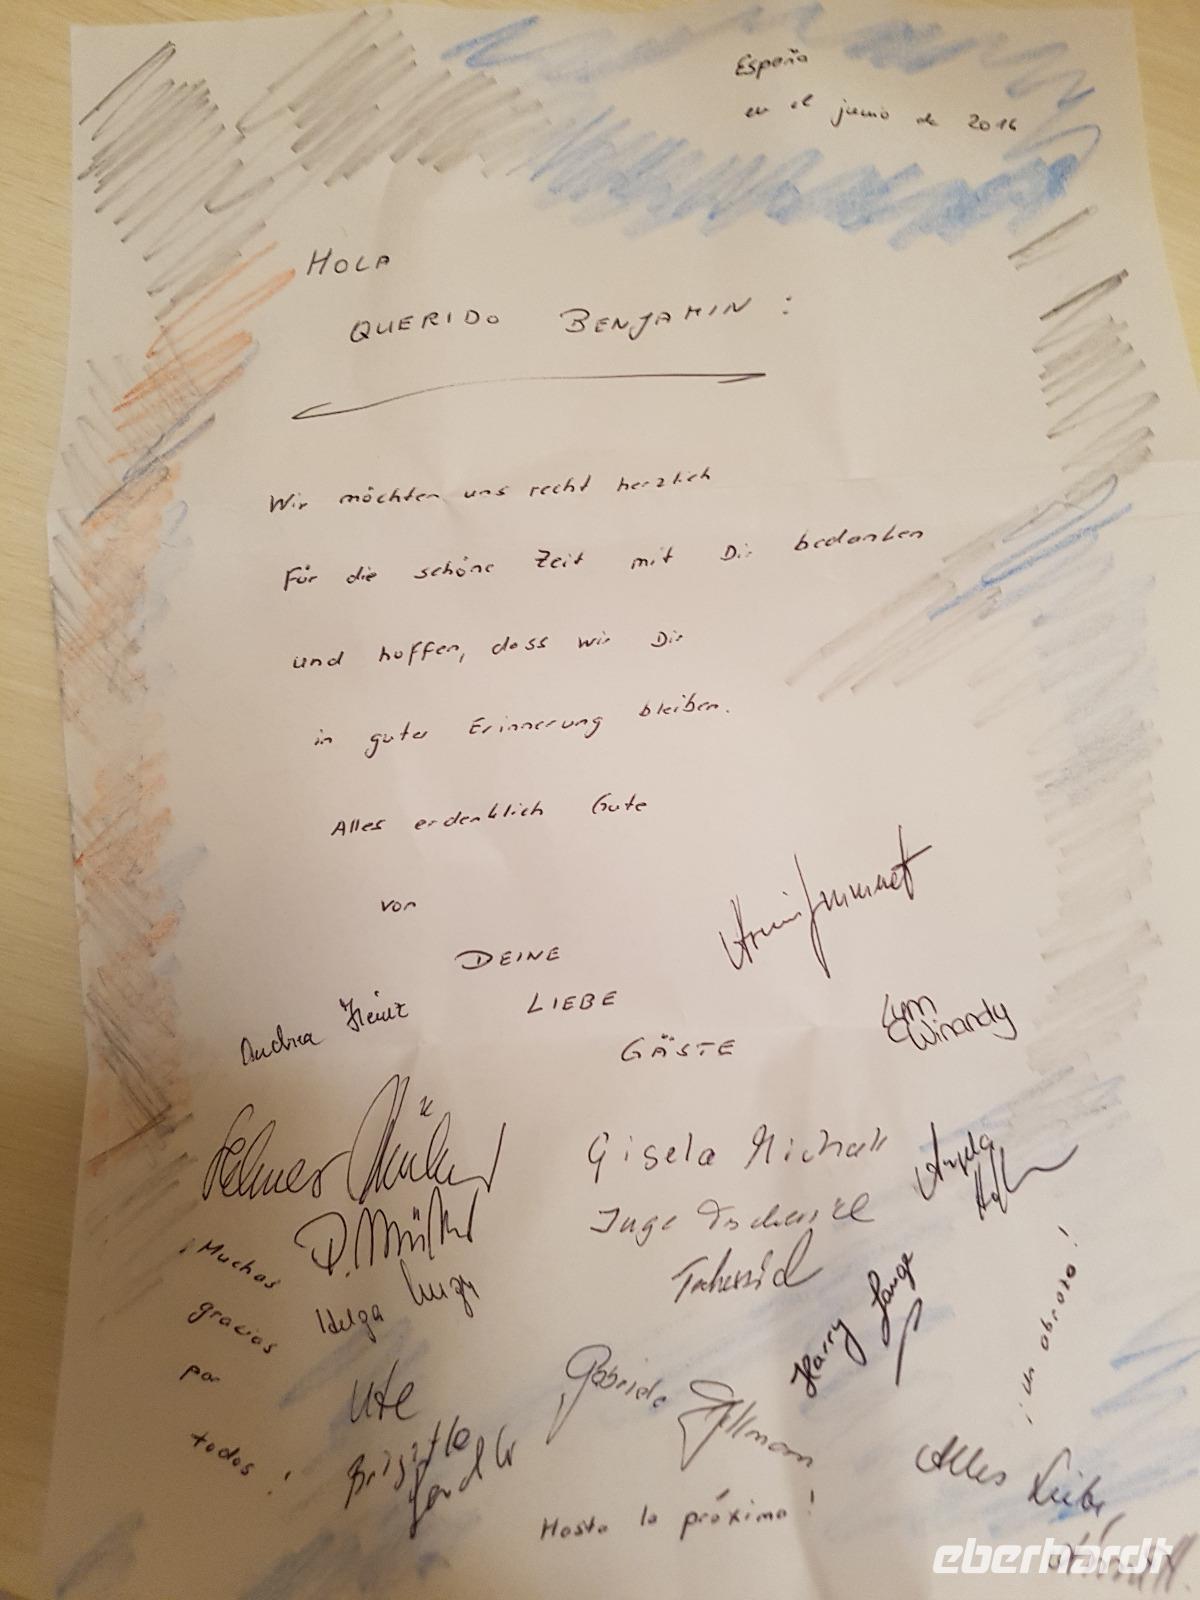 España
en el junio de 2016
HOLA
QUERIDO BENJAMIN :
Wir möchten uns recht herzlich
für die schöne Zeit mit Dir bedanken
und hoffen, dass wir Dir
in guter Erinnerung bleiben.
Alles erdenklich Gute
von
DEINE
LIEBE
GÄSTE
Andrea
Winandy
Gisela
Angela
Inge
D. Müller
¡Muchas
gracias
por
todos!
Helga
Harry Lange
¡Un abrazo!
Ute
Gabriele
Brigitte
Alles Liebe
Hasta la próxima!
eberhardt